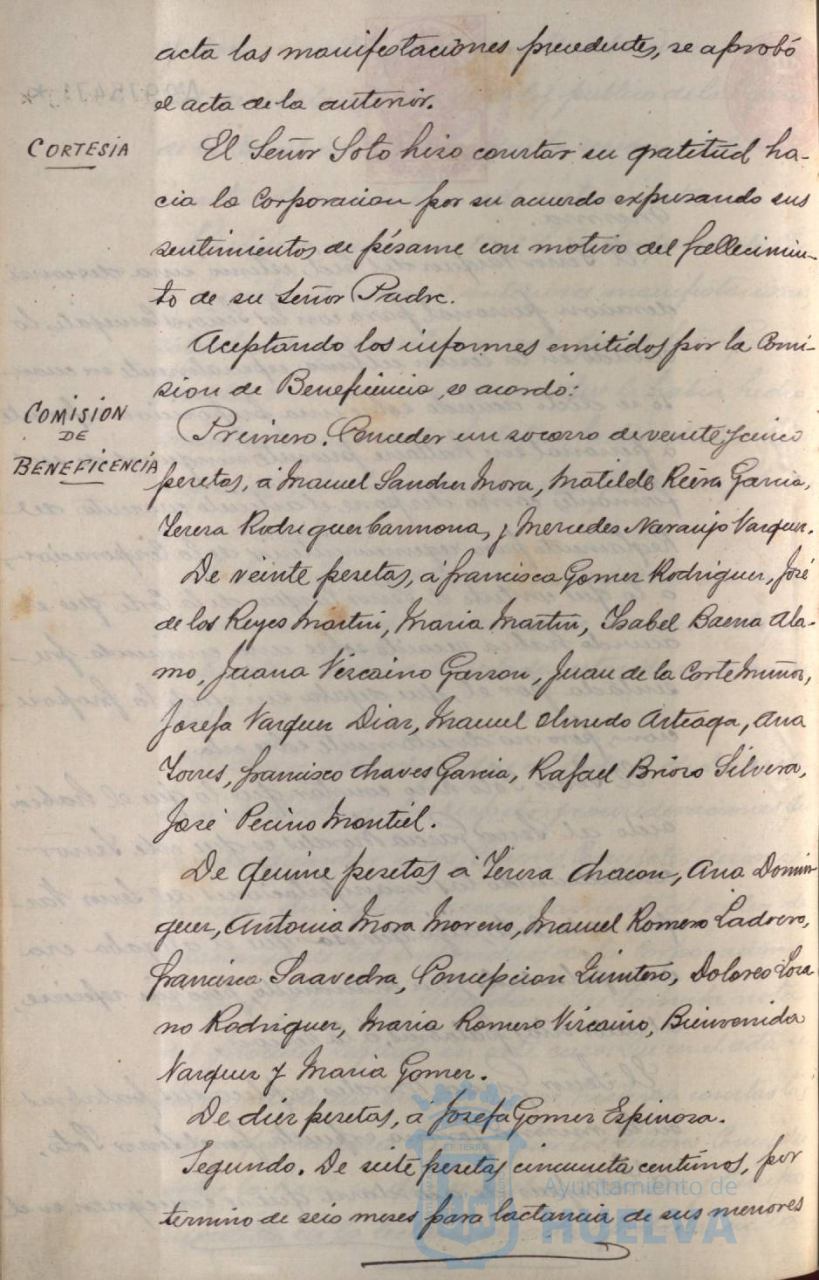 acta las manifestaciones precedentes, se aprobó
el acta de la anterior.
CORTESIA
El Señor Soto hizo constar su gratitud ha-
cia la Corporacion por su acuerdo expresando sus
sentimientos de pésame con motivo del fallecimien-
to de su Señor Padre.
Aceptando los informes emitidos por la Comi-
sion de Beneficencia, se acordó:
COMISION
DE
BENEFICENCIA
Primero. Conceder un socorro de veinte y cinco
pesetas, á Manuel Sanchez Mora, Matilde Riera Garcia,
Teresa Rodriguez Carmona, y Mercedes Naranjo Vazquez.
De veinte pesetas, á Francisca Gomez Rodriguez, José
de los Reyes Martin, Maria Martin, Isabel Baena Ala-
mo, Juana Vizcaino Garzon, Juan de la Corte Muñoz,
Josefa Vazquez Diaz, Manuel Olmedo Arteaga, Ana
Torres, Francisco Chaves Garcia, Rafael Brioso Silvera,
José Pecino Montiel.
De quince pesetas á Teresa Chacon, Ana Domin-
guez, Antonia Mora Moreno, Manuel Romero Ladrero,
Francisca Saavedra, Concepcion Quintero, Dolores Loza
no Rodriguez, Maria Romero Vizcaino, Bienvenida
Vazquez y Maria Gomez.
De diez pesetas, á Josefa Gomez Espinosa.
Segundo. De siete pesetas cincuenta centimos, por
termino de seis meses para lactancia de sus menores
Ayuntamiento de
HUELVA